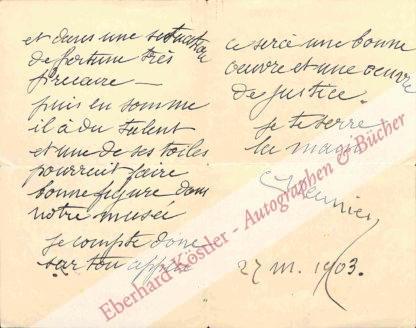 et dans une situation
de fortune très
précaire —
puis en somme
il a du talent
et une de ses toiles
pourrait faire
bonne figure dans
notre musée
je compte donc
sur ton appui
ce sera une bonne
oeuvre et une oeuvre
de justice.
je te serre
la main
C Meunier
27 M. 1903.
Eberhard Köstler - Autographen & Bücher